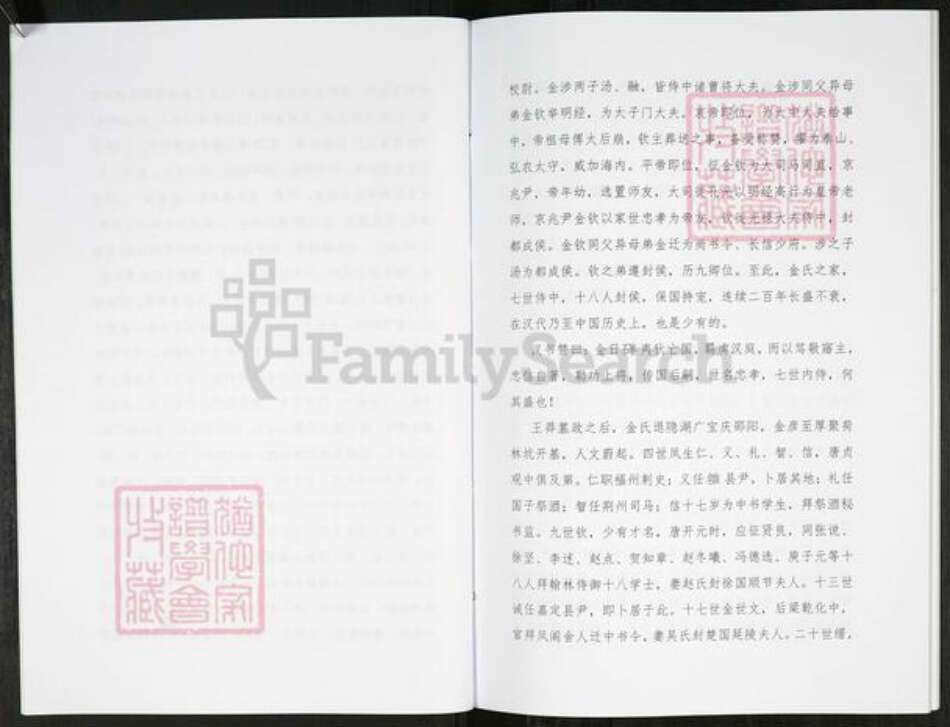 校尉。金涉两子汤、融，皆侍中诸曹将大夫。金涉同父异母
弟金钦举明经，为太子门大夫。哀帝即位，为太中大夫给事
中，帝祖母傅太后崩，钦主葬送之事，备受称赞，擢为泰山、
弘农太守，威加海内。平帝即位，征金钦为大司马司直、京
兆尹，帝年幼，选置师友，大司徒孔光以明经高行为皇帝老
师，京兆尹金钦以家世忠孝为帝友。钦徙光禄大夫侍中，封
都成侯。金钦同父异母弟金迁为尚书令、长信少府。涉之子
汤为都成侯。钦之弟遵封侯，历九卿位。至此，金氏之家，
七世侍中，十八人封侯，保国持宠，连续二百年长盛不衰，
在汉代乃至中国历史上，也是少有的。
汉书赞曰：金日磾夷狄亡国，羁虏汉庭，而以笃敬寤主，
忠信自著，勒功上将，传国后嗣，世名忠孝，七世内侍，何
其盛也！
王莽篡政之后，金氏退隐湖广宝庆邵阳，金彦至厚聚荷
林坑开基，人文蔚起。四世凤生仁、义、礼、智、信，唐贞
观中俱及第。仁职福州刺史；义任 县尹，卜居其地；礼任
国子祭酒；智任荆州司马；信十七岁为中书学生，拜祭酒秘
书监。九世钦，少有才名，唐开元时，应征贤良，同张说、
徐坚、李述、赵点、贺知章、赵冬曦、冯德选、庾子元等十
八人拜翰林侍御十八学士，妻赵氏封徐国顺节夫人。十三世
诚任嘉定县尹，即卜居于此。十七世金世文，后梁乾化中，
官拜凤阁舍人迁中书令，妻吴氏封楚国延陵夫人。二十世缙，
FamilySearch
犹他家
谱学会
收藏
犹他家
谱学会
收藏